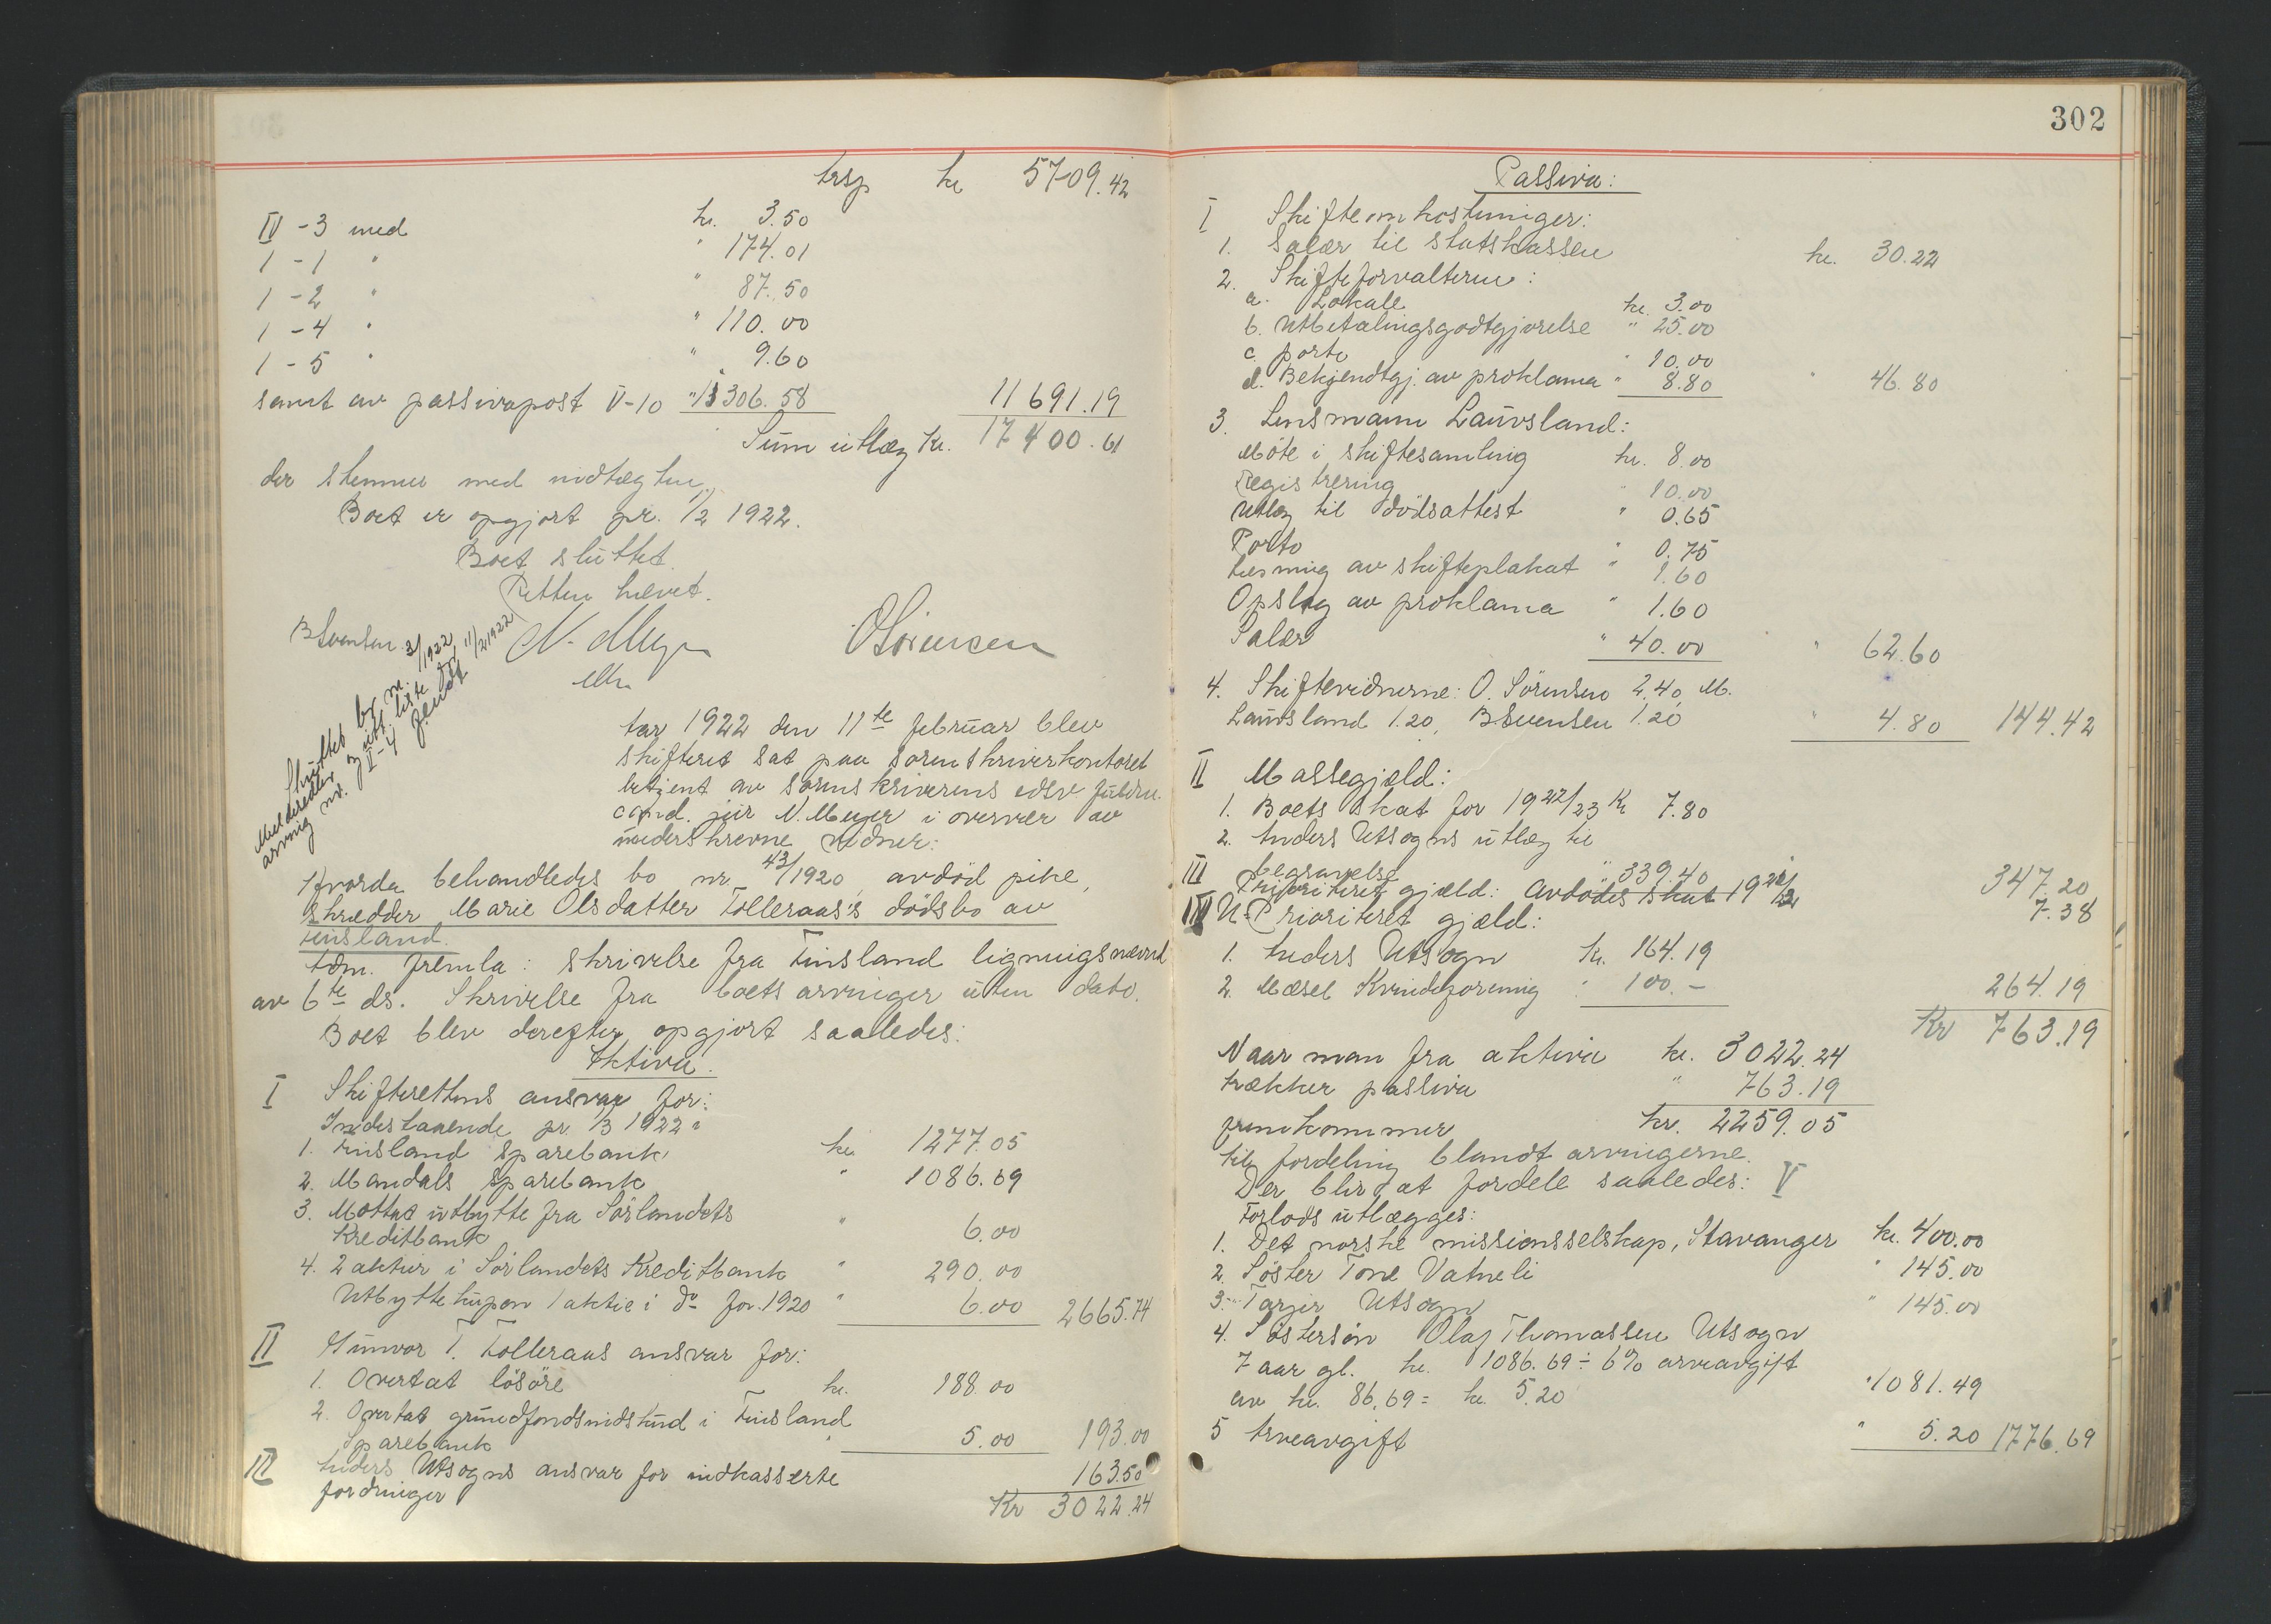 trsp kr 5709.42
IV - 3 med kr. 3.50
1 - 1 " " 174.01
1 - 2 " " 87.50
1 - 4 " " 110.00
1 - 5 " " 9.60
samt av passivapost V-10 " 306.58 11691.19
Sum utlæg Kr. 17400.61
der stemmer med
Boet er opgjort pr. 1/2 1922.
Boet sluttet.
Retten hævet.
BSvensen N. Meyer OSörensen
Aar 1922 den 11te februar blev
skifteret sat paa sorenskriverkontoret
betjent av sorenskriverens edsv fuldm.
cand. jur N. Meyer i overvær av
underskrevne vidner:
Hvorda behandledes bo nr 43/1920, avdöd pike,
skrædder Marie Olsdatter Tolleraas's dödsbo av
Finsland.
Adm. fremla: skrivelse fra Finsland ligningsnævnd
av 6te ds. Skrivelse fra boets arvinger uten dato.
Boet blev derefter opgjort saaledes:
Aktiva.
I Skifterettens ansvar for:
Indestaaende pr. 1/3 1922:
1. Finsland Sparebank kr. 1277.05
2. Mandals Sparebank " 1086.69
3. Mottat utbytte fra Sörlandets
Kreditbank " 6.00
4. 2 aktier i Sörlandets Kreditbank " 290.00
Utbyttekupon 1 aktie i do for 1920 " 6.00 2665.74
II Gunvor T. Tolleraas ansvar for:
1. Overtat lösöre kr. 188.00
2. Overtat grundfondsindskud i Finsland
Sparebank " 5.00 193.00
III Anders Utsogns ansvar for indkasserte
fordringer 163.50
Kr 3022.24
Sluttet
302
Passiva:
I Skifteomkostninger:
1. Salær til statskassen kr. 30.22
2. Skifteforvalteren:
a. Lokale kr. 3.00
b. Utbetalingsgodtgjørelse " 25.00
c. porto " 10.00
d. Bekjendtgj. av proklama " 8.80 " 46.80
3. Lensmann Lauvsland:
Möte i skiftesamling kr. 8.00
Registrering " 10.00
Utlæg til dödsattest " 0.65
Porto " 0.75
Læsning av skifteplakat " 1.60
Opslag av proklama " 1.60
Salær " 40.00 " 62.60
4. Skiftevidnerne: O. Sörensen 2.40, M.
Lauvsland 1.20, BSvensen 1.20 " 4.80 144.42
II Massegjæld:
1. Boets skat for 1922/23 Kr 7.80
2. Anders Utsogns utlæg til
begravelse " 339.40 347.20
III Prioriteret gjæld: Avdödes skat 7.38
IV U-Prioriteret gjæld:
1. Anders Utsogn kr. 164.19
2. Mæsel Kvindeforening " 100.- 264.19
Kr 763.19
Naar man fra aktiva kr. 3022.24
trækker passiva " 763.19
fremkommer kr. 2259.05
til fordeling blandt arvingerne.
Der blir at fordele saaledes: V
Forlods utlægges:
1. Det norske missionsselskap, Stavanger kr. 400.00
2. Söster Tone Vatneli " 145.00
3. " Tarjer Utsogn " 145.00
4. Söstersön Olaf Thomassen Utsogn
7 aar gl. kr. 1086.69 ÷ 6% arveavgift
av kr. 86.69 = kr. 5.20 " 1081.49
5 Arveavgift " 5.20 1776.69